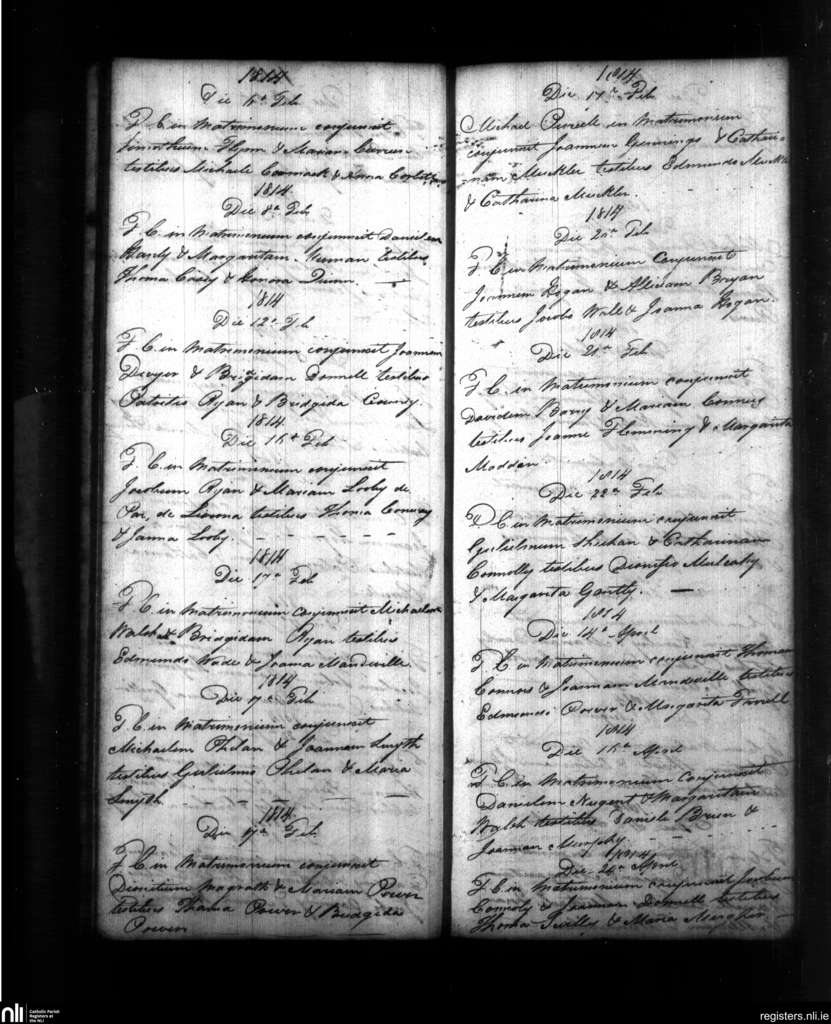 1814
Die Feb
F. C. in Matrimonium conjunxit
Flynn & Mariam
testibus Michaele Cormack &
1814
Die 8a Feb
F. C. in Matrimonium conjunxit Danielem
Hardy & Margaritam testibus
Thoma Casey & Honora Quinn
1814
Die 12a Feb
F. C. in Matrimonium conjunxit Joannem
Dwyer & Brigidam Donnell testibus
Patritio Ryan & Bridgida
1814
Die 16a Feb
F. C. in Matrimonium conjunxit
Jacobum Ryan & Mariam Looby de
Par, de testibus Thoma Conway
& Joanna Looby.
1814
Die 17a Feb
F. C. in Matrimonium conjunxit Michaelem
Walsh & Bridgidam Ryan testibus
Edmundo Wade & Joanna Mandeville.
1814
Die 17a Feb
F. C. in Matrimonium conjunxit
Michaelem Phelan & Joannam Smyth
testibus Gulielmo Phelan & Maria
Smyth
1814
Die 17a Feb.
F. C. in Matrimonium conjunxit
Dionitium Magrath & Mariam Power
testibus Thoma Power & Bridgida
Power
1814
Die 17a Feb
Michael Purcell in Matrimonium
conjunxit Joannem Jennings & Cathari-
nam Muckler testibus Edmundo Muckler
& Catharina Muckler.
1814
Die 20a Feb
F. C. in Matrimonium conjunxit
Joannem Hogan & Bryan
testibus Jacobo Wall & Joanna Hogan.
1814
Die 21a Feb
F. C. in Matrimonium conjunxit
Davidem Barry & Mariam Connors
testibus Joanne Flemming & Margarita
Madden
1814
Die 22a Feb
F. C. in Matrimonium conjunxit
Gulielmum Sheehan & Catharinam
Connolly testibus Dionisio Mulcahy
& Margarita
1814
Die 14a April
F. C. in Matrimonium conjunxit Thomam
Connors & Joannam Mandeville testibus
Edmundo Power & Margarita Farrell
1814
Die 16a April
F. C. in Matrimonium conjunxit
Danielem Nugent & Margaritam
Walsh testibus Daniele &
Joannam Murphy
1814
Die 24a April
F. C. in Matrimonium conjunxit
Connoly & Joannam Donnell testibus
Thoma & Maria
nli
Catholic Parish
Registers at
the NLI
registers.nli.ie